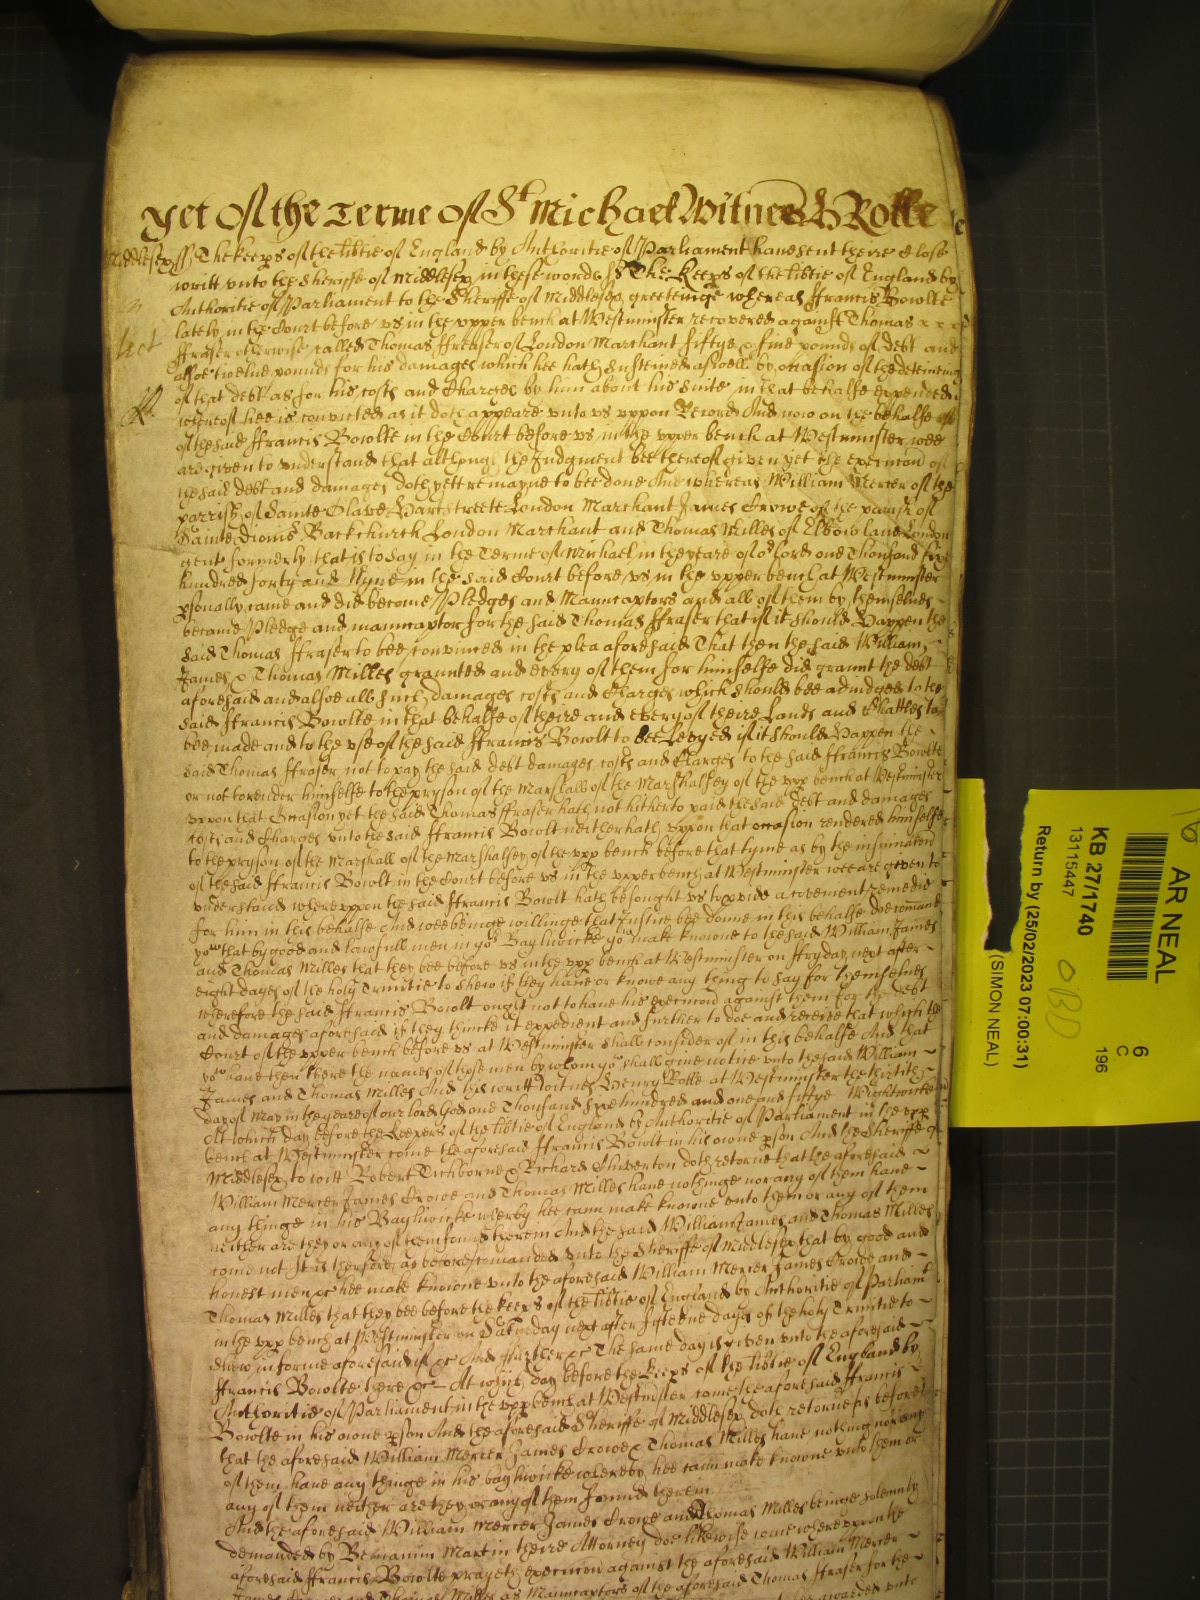 yet of the Terme of St Michael Witnes H Rolle
Middlesex ss The keeps of the libtie of England by Authoritie of Parliament have sent theire close
writt unto the Sheriffe of Middlesex in these words ss The Keeps of the libtie of England by
Authoritie of Parliament to the Sheriffe of Middlesex greetinge whereas ffrancis Bowlte
lately in the Court before us in the upper bench at Westminster recovered against Thomas x x x
ffraser otherwise called Thomas ffraser of London Marchant fiftye & five pounds of debt and
alsoe twelve pounds for his damages which hee hath susteined aswell by occasion of the deteining
of that debt as for his costs and Charges by him about his suite in that behalfe expended
whereof hee is convicted as it doth appeare unto us uppon Record And now on the behalfe
of the said ffrancis Bowlte in the Court before us in the upper bench at Westminster wee
are given to understand that although the Judgment bee thereof given yet the execucion of
the said debt and damages doth yett remayne to bee done And whereas William Mercer of the
parrish of Sainte Olave Hartstreete London Marchant James Crowe of the parish of
Sainte Dionis Backchurch London Marchant and Thomas Milles of Elbow lane London
gent formerly that is to say in the Terme of Michael in the yeare of or lord one Thousand six
hundred forty and Nyne in the said Court before us in the upper bench at Westminster
psonally came and did become Pledges and Manucaptors and all of them by themselves
became Pledge and manucaptor for the said Thomas ffraser that if it should happen the
said Thomas ffraser to bee convinced in the plea aforesaid That then the said William
James & Thomas Milles graunted and every of them for himselfe did graunt the debt
aforesaid and alsoe all such damages costs and Charges which should bee adiudged to the
said ffrancis Bowlte in that behalfe of theire and every of theire Lands and Chattles to
bee made and to the use of the said ffrancis Bowlt to bee Levyed if it should happen the
said Thomas ffraser not to pay the said debt damages costs and Charges to the said ffrancis Bowlte
or not to render himselfe to the pryson of the Marshall of the Marshalsey of the upp bench at Westminster
uppon that Occasion yet the said Thomas ffraser hath not hitherto paid the said debt and damages
costs and Charges unto the said ffrancis Bowlt neither hath uppon that occasion rendered himselfe
to the pryson of the Marshall of the Marshalsey of the upp bench before that tyme as by the insinuacion
of the said ffrancis Bowlt in the Court before us in the upper bench at Westminster wee are given to
understand whereuppon the said ffrancis Bowlt hath besought us to pvide a convenient remedie
for him in this behalfe And wee beinge willinge that Justice bee donne in this behalfe doe comand
you that by good and lawfull men in yor Baylywicke you make knowne to the said William James
and Thomas Milles that they bee before us in the upp bench at Westminster on ffryday next after
eight dayes of the holy Trinitie to shew if they have or knowe any thing to say for themselves
wherefore the said ffrancis Bowlt ought not to have his execucion against them for the debt
and damages aforesaid if they thincke it expedient and further to doe and receive that which the
Court of the upper bench before us at Westminster shall consider of in this behalfe And that
you have then there the names of those men by whom you shall give notice unto the said William
James and Thomas Milles And this writt Witnes Henry Rolle at Westminster the thirtith
day of May in the yeare of our lord God one Thousand sixe hundred and one and fiftye Wightwicke
At which day before the Keepers of the libtie of England by Authoritie of Parliament in the upp
bench at Westminster come the aforesaid ffrancis Bowlt in his owne pson And the Sheriffe of
Middlesex to witt Robert Tichborne & Richard Chiverton doth retorne that the aforesaid
William Mercer James Crowe and Thomas Milles have nothinge nor any of them have
any thinge in his Baylywicke wherby hee cann make knowne unto them or any of them
neither are they or any of them found therein And the said William James and Thomas Milles
come not It is therefore as before comanded unto the Sheriffe of Middlesex that by good and
honest men &c hee make knowne unto the aforesaid William Mercer James Crowe and
Thomas Milles that they bee before the keeps of the libtie of England by Authoritie of Parliamt
in the upp bench at Westminster on Saturday next after fifteene dayes of the holy Trinitie to
shew in forme aforesaid if &c And further &c The same day is given unto the aforesaid
ffrancis Bowlte there &c At which day before the Keeps of the libtie of England by
Authoritie of Parliament in the upp bench at Westminster come the aforesaid ffrancis
Bowlte in his owne pson And the aforesaid Sheriffe of Middlesex doth retorne as before
that the aforesaid William Mercer James Crowe & Thomas Milles have nothing nor any
of them have any thinge in his baylywicke whereby hee cann make knowne unto them or
any of them neither are they or any of them found therein
And the aforesaid William Mercer James Crowe and Thomas Milles beinge solemnly
demanded by Beniamin Martin theire Attorney doe likewise come whereuppon the
aforesaid ffrancis Bowlte prayeth execucion against the aforesaid William Mercer
James Crowe and Thomas Milles as Manucaptors of the aforesaid Thomas ffraser for the
AR NEAL
KB 27/1740
13115447
Return by (25/02/2023 07:00:31)
(SIMON NEAL)
6
C
196